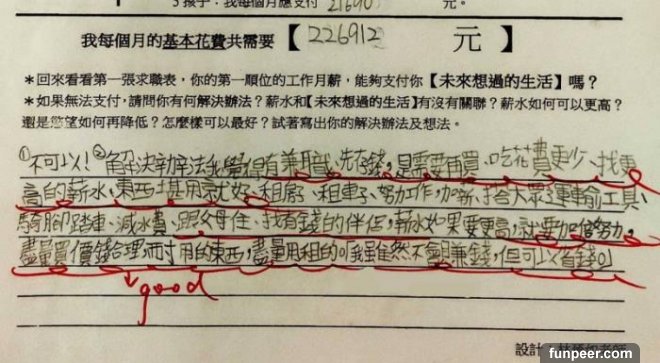 3孩子：我每個月應支付 21690 元。
我每個月的基本花費共需要【226912 元】
*回來看看第一張求職表，你的第一順位的工作月薪，能夠支付你【未來想過的生活】嗎？
*如果無法支付，請問你有何解決辦法？薪水和【未來想過的生活】有沒有關聯？薪水如何可以更高？
還是慾望如何再降低？怎麼樣可以最好？試著寫出你的解決辦法及想法。
①不可以！②解決辦法我覺得有兼職、先存錢，是需要再買、吃花費更少、找更
高的薪水，東西堪用就好、租房子、租車子、努力工作，加薪、搭大眾運輸工具、
騎腳踏車、減水費、跟父母住、找有錢的伴侶，薪水如果要更高，就要加倍努力，
盡量買價錢合理，耐用的東西，盡量用租的。我雖然不會賺錢，但可以省錢。
good
設計：林
funpeer.com